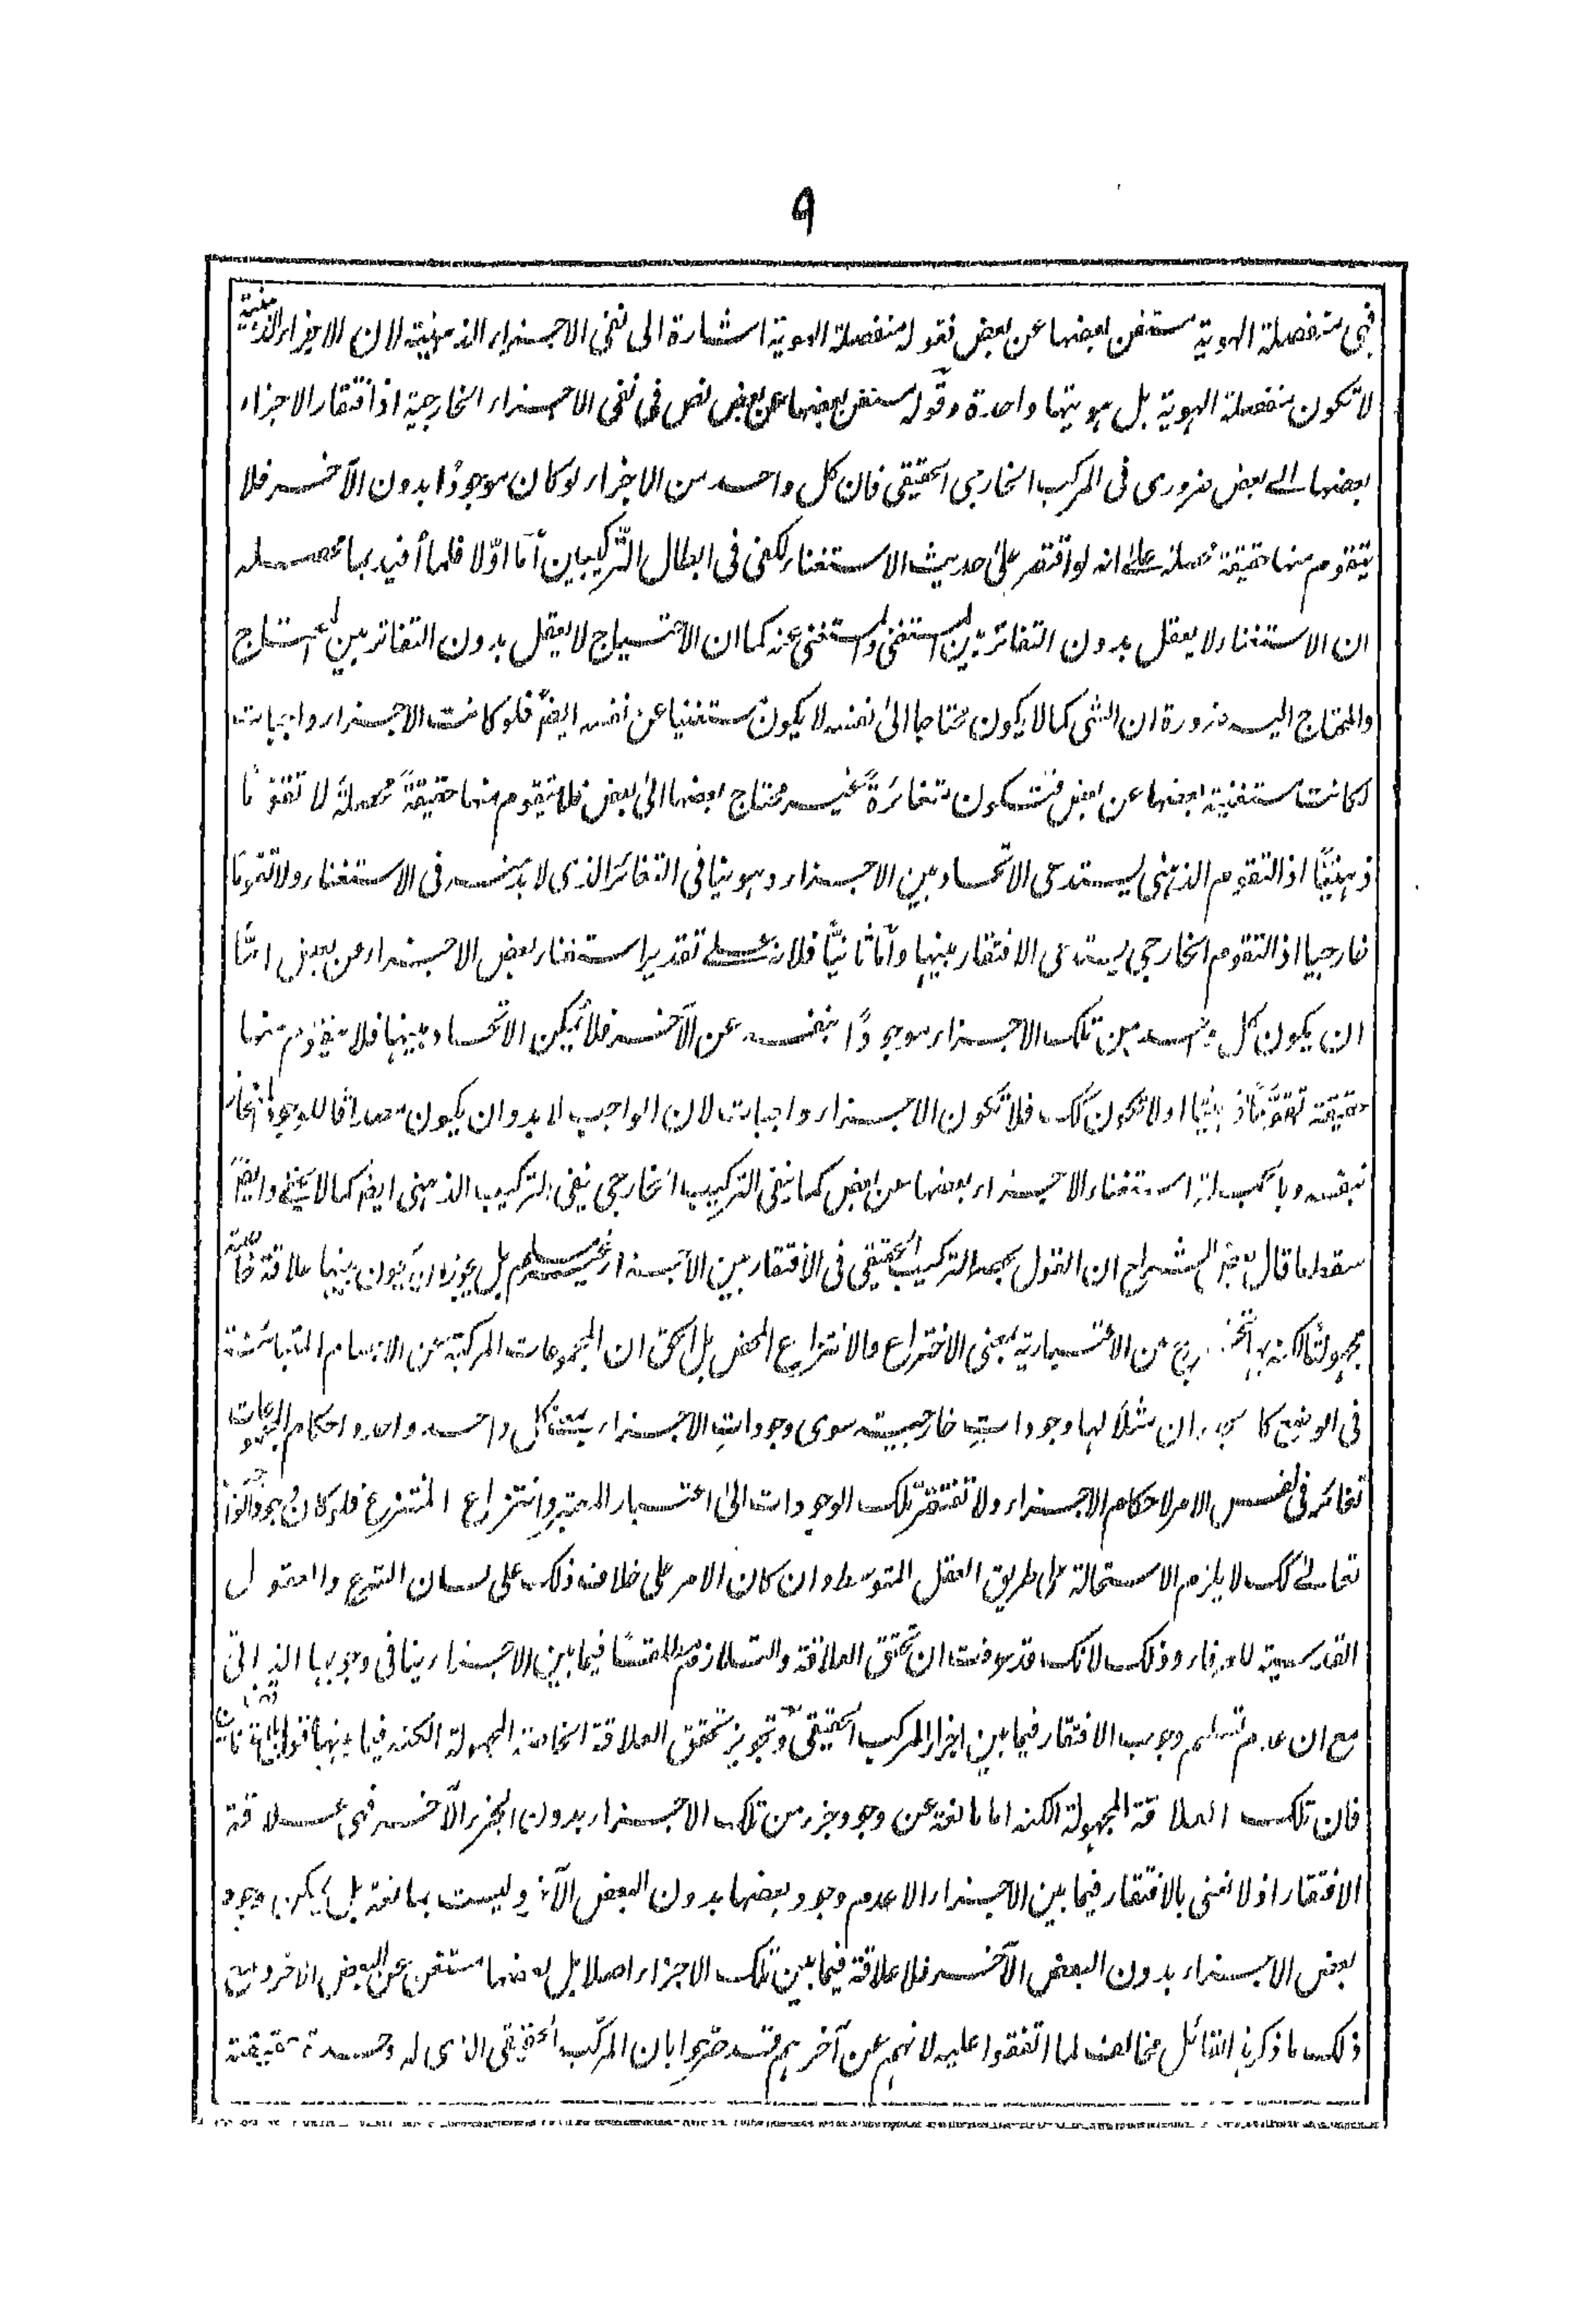 ۹
فهى منفصلة الهوية مستغن بعضها عن بعض فقوله منفصلة الهوية اشارة الى نفى الاجزاء الذهنية لان الاجزاء الذهنية
لا تكون منفصلة الهوية بل هويتها واحدة وقوله مستغن بعضها عن بعض نص فى نفى الاجزاء الخارجية اذ افتقار الاجزاء
بعضها الى بعض ضرورى فى المركب الخارجى الحقيقى فان كل واحد من الاجزاء لو كان موجودًا بدون الآخر فلا
يتقوم منها حقيقة محصلة على انه لو اقتصر على حديث الاستغناء لكفى فى ابطال التركيبين أمّا اوّلا فلما أفيد بما محصله
ان الاستغناء لا يعقل بدون التغائر بين المستغنى والمستغنى عنه كما ان الاحتياج لا يعقل بدون التغائر بين المحتاج
والمحتاج اليه ضرورة ان الشى كما لا يكون محتاجا الى نفسه لا يكون مستغنيا عن نفسه ايضًا فلو كانت الاجزاء واجبات
لكانت مستغنية بعضها عن بعض فتكون متغائرةً غير محتاج بعضها الى بعض فلا يتقوم منها حقيقةً محصلةً لا تقومًا
ذهنيًّا اذ التقوم الذهنى يستدعى الاتحاد بين الاجزاء وهو ينافى التغائر الذى لا بد منه فى الاستغناء ولا تقومًا
خارجيا اذ التقوم الخارجى يستدعى الافتقار بينها وأمّا ثانيًّا فلان على تقدير استغناء بعض الاجزاء عن بعض امّا
ان يكون كل واحد من تلك الاجزاء موجودًا بنفسه عن الآخر فلا يمكن الاتحاد بينها فلا يتقوم منها
حقيقة تقوّمًا ذهنيًّا او لا تكون كك فلا تكون الاجزاء واجبات لان الواجب لا بد وان يكون مصداقا للوجود الخار
بنفسه وبالجملة استغناء الاجزاء بعضها عن بعض كما ينفى التركيب الخارجى ينفى التركيب الذهنى ايضا كما لا يخفى وايضًا
سقط ما قال بعض الشراح ان القول بحصر التركيب الحقيقى فى الافتقار بين الاجزاء غير مسلم بل يجوز ان يكون بينها علاقة خاصة
مجهولة الكنه بها تخرج عن الاعتبارية بمعنى الاختراع والانتزاع المحض بل الحق ان المجموعات المركبة عن الاجسام المتبائنة
فى الوضع كالجدران مثلًا لها وجودات خارجية سوى وجودات الاجزاء بمعنى كل واحد واحد واحكام المجموعات
تغائر فى نفس الامر لاحكام الاجزاء ولا تفتقر تلك الوجودات الى اعتبار المعتبر وانتزاع المنتزع فلو كان وجود الواجب
تعالى كك لا يلزم الاستحالة على طريق العقل المتوسط وان كان الامر على خلاف ذلك على لسان الشرع والعقول
القدسية للعرفاء وذلك لانك قد عرفت ان تحقق العلاقة والتلازم مطلقًا فيما بين الاجزاء ينافى وجوبها الذاتى
مع ان عدم تسليم وجوب الافتقار فيما بين اجزاء المركب الحقيقى وتجويز تحقق العلاقة الخاصة المجهولة الكنه فيما بينها
فان تلك العلاقة المجهولة الكنه اما مانعة عن وجود جزء من تلك الاجزاء بدون الجزء الآخر فهى علاقة
الافتقار اذ لا نعنى بالافتقار فيما بين الاجزاء الا عدم وجود بعضها بدون البعض الآخر وليست بمانعة بل يمكن وجود
بعض الاجزاء بدون البعض الآخر فلا علاقة فيما بين تلك الاجزاء اصلا بل بعضها مستغن عن البعض الآخر ومع
ذلك ما ذكره القائل مخالف لما اتفقوا عليه لانهم عن آخرهم قد صرّحوا بان المركّب الحقيقى الذى له وحدة حقيقة